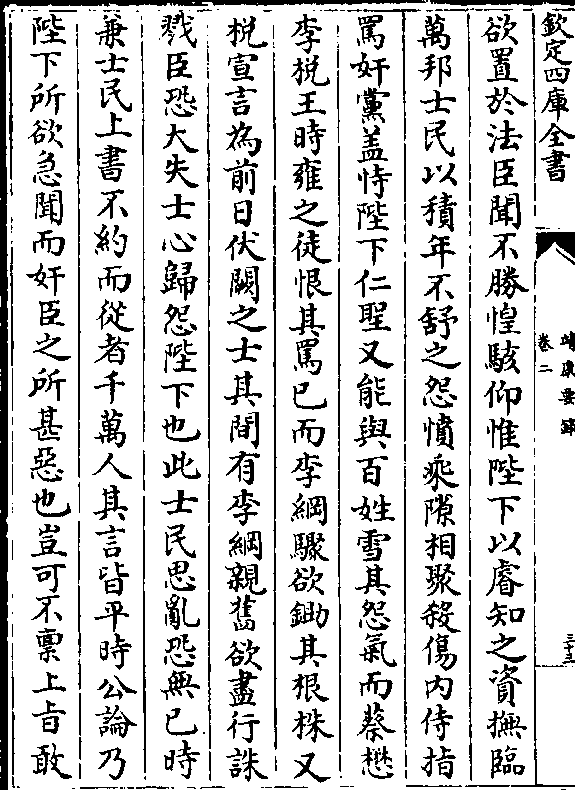 欽定四庫全書
靖康要錄
卷二
三十三
欲置於法臣聞不勝惶駭仰惟陛下以睿知之資撫臨
萬邦士民以積年不舒之怨憤乘隙相聚殺傷内侍指
罵奸黨盖恃陛下仁聖又能與百姓雪其怨氣而蔡懋
李梲王時雍之徒恨其罵已而李綱驟欲鋤其根株又
梲宣言為前日伏闕之士其間有李綱親舊欲盡行誅
戮臣恐大失士心歸怨陛下也此士民思亂恐無已時
兼士民上書不約而從者千萬人其言皆平時公論乃
陛下所欲急聞而奸臣之所甚惡也豈可不稟上㫖敢